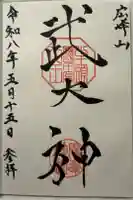 広峰山
武大神
令和八年五月十五日 参拝